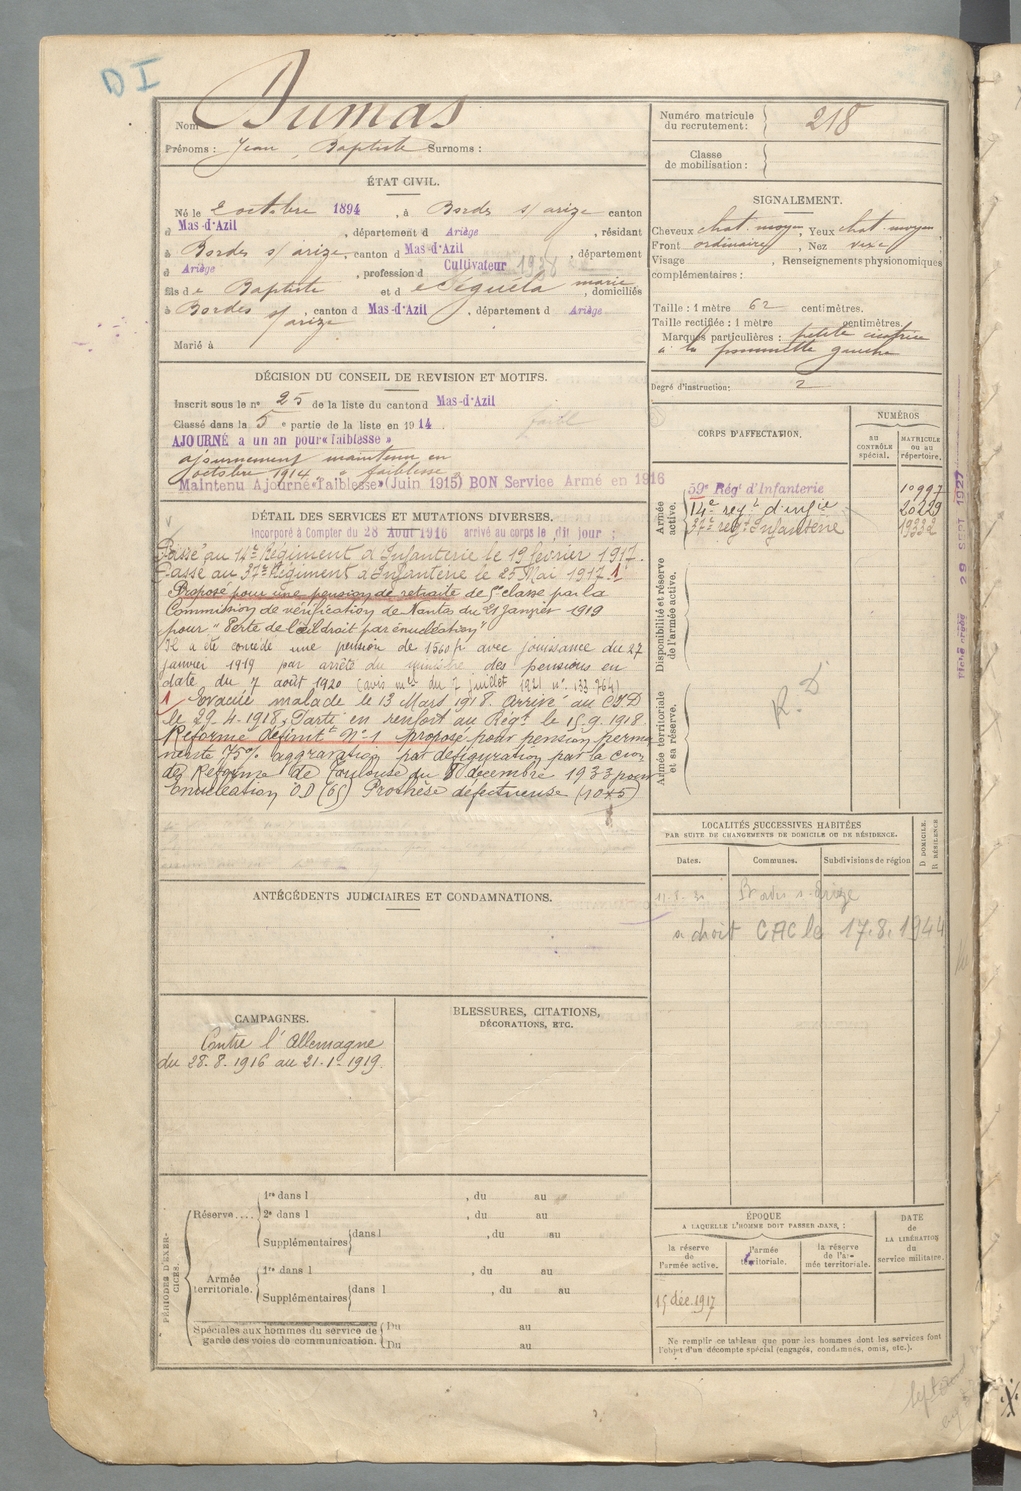 D I
Nom Dumas
Prénoms : Jean, Baptiste Surnoms :
Numéro matricule du recrutement : 218
Classe de mobilisation :
ÉTAT CIVIL.
Né le 2 octobre 1894, à Bordes s/ arize canton
d Mas-d'Azil, département d Ariège, résidant
à Bordes s/ arize, canton d Mas-d'Azil, département
d Ariège, profession d Cultivateur 1938
fils de Baptiste et de Séguéla marie, domiciliés
à Bordes s/ arize, canton d Mas-d'Azil, département d Ariège
Marié à
SIGNALEMENT.
Cheveux chat. moyen, Yeux chat. moyen,
Front ordinaire, Nez
Visage , Renseignements physionomiques
complémentaires :
Taille : 1 mètre 62 centimètres.
Taille rectifiée : 1 mètre centimètres.
Marques particulières : petite cicatrice
à la pommette gauche
Degré d'instruction : 2
DÉCISION DU CONSEIL DE REVISION ET MOTIFS.
Inscrit sous le n° 25 de la liste du canton d Mas-d'Azil
Classé dans la 5e partie de la liste en 1914.
AJOURNÉ à un an pour « faiblesse »
ajournement maintenu en
octobre 1914 « faiblesse »
Maintenu Ajourné « Faiblesse » (Juin 1915) BON Service Armé en 1916
DÉTAIL DES SERVICES ET MUTATIONS DIVERSES.
Incorporé à Compter du 28 Août 1916 arrivé au corps le dit jour ;
Passé au 14e Régiment d'Infanterie le 19 février 1917.
Passé au 37e Régiment d'Infanterie le 25 Mai 1917. 1
Proposé pour une pension de retraite de 5e classe par la
Commission de vérification de Nantes du 21 Janvier 1919
pour "Perte de l'œil droit par énucléation"
a été concédé une pension de 1560 fr avec jouissance du 27
janvier 1919 par arrêté du ministre des pensions en
date du 7 août 1920 (avis mel du 7 juillet 1921 n° 133.764)
1 Evacué malade le 13 Mars 1918. Arrivé au CID
le 29.4.1918. Parti en renfort au Régt le 15.9.1918.
Réformé définitt N°1 proposé pour pension perma
nente 75% aggravation par défiguration par la Cion
de Réforme de Toulouse du 8 décembre 1933 pour
Enucléation O D (65) Prothèse défectueuse (10+5)
CORPS D'AFFECTATION.
NUMÉROS
au contrôle spécial.
MATRICULE ou au répertoire.
Armée active.
59e Régt d'Infanterie 10997
14e régt d'infie 20229
37e régt Infanterie
Disponibilité et réserve de l'armée active.
Armée territoriale et sa réserve.
R. D
Fiche créée 29 SEPT 1927
LOCALITÉS SUCCESSIVES HABITÉES
PAR SUITE DE CHANGEMENTS DE DOMICILE OU DE RÉSIDENCE.
Dates. Communes. Subdivisions de région
D DOMICILE. R RÉSIDENCE
a droit CAC le 17.8.1944
ANTÉCÉDENTS JUDICIAIRES ET CONDAMNATIONS.
CAMPAGNES.
Contre l'Allemagne
du 28.8.1916 au 21.1.1919.
BLESSURES, CITATIONS,
DÉCORATIONS, ETC.
PÉRIODES D'EXERCICES.
Réserve.... 1re dans l , du au
2e dans l , du au
Supplémentaires dans l , du au
Armée territoriale. 1re dans l , du au
Supplémentaires dans l , du au
Spéciales aux hommes du service de garde des voies de communication. Du au
Du au
ÉPOQUE
A LAQUELLE L'HOMME DOIT PASSER DANS :
la réserve de l'armée active.
l'armée territoriale.
la réserve de l'armée territoriale.
DATE de LA LIBÉRATION du service militaire.
15 déc. 1917
Ne remplir ce tableau que pour les hommes dont les services font
l'objet d'un décompte spécial (engagés, condamnés, omis, etc.).